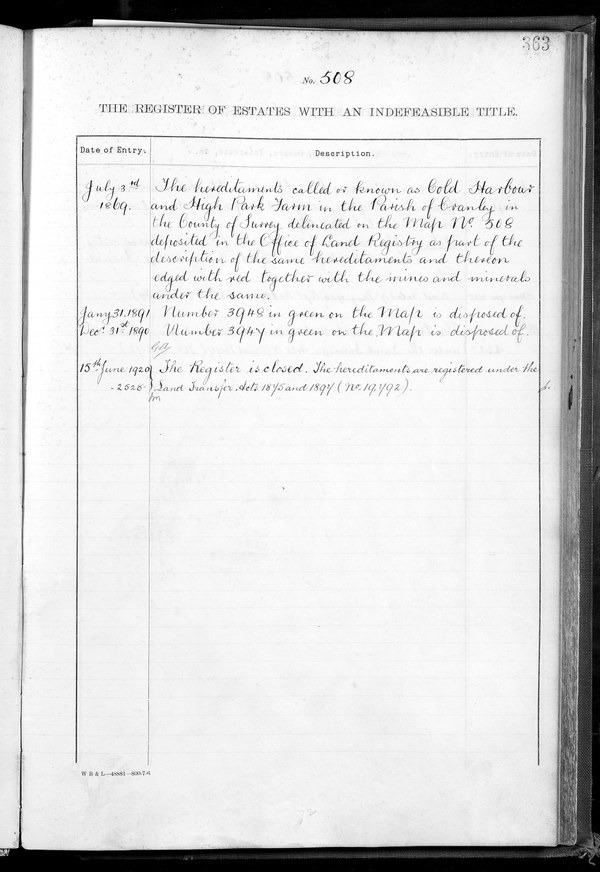 363
No. 508
THE REGISTER OF ESTATES WITH AN INDEFEASIBLE TITLE.
Date of Entry.
Description.
July 3rd 1869.
The hereditaments called or known as Cold Harbour
and High Park Farm in the Parish of Cranley in
the County of Surrey delineated on the Map No. 508
deposited in the Office of Land Registry as part of the
description of the same hereditaments and thereon
edged with red together with the mines and minerals
under the same.
Jany 31. 1891 Number 3948 in green on the Map is disposed of.
Decr. 31st 1890 Number 3947 in green on the Map is disposed of.
15th June 1920 The Register is closed. The hereditaments are registered under the
- 2528 - Land Transfer Acts 1875 and 1897 (No. 19792).
W B & L—48881—800-7-6